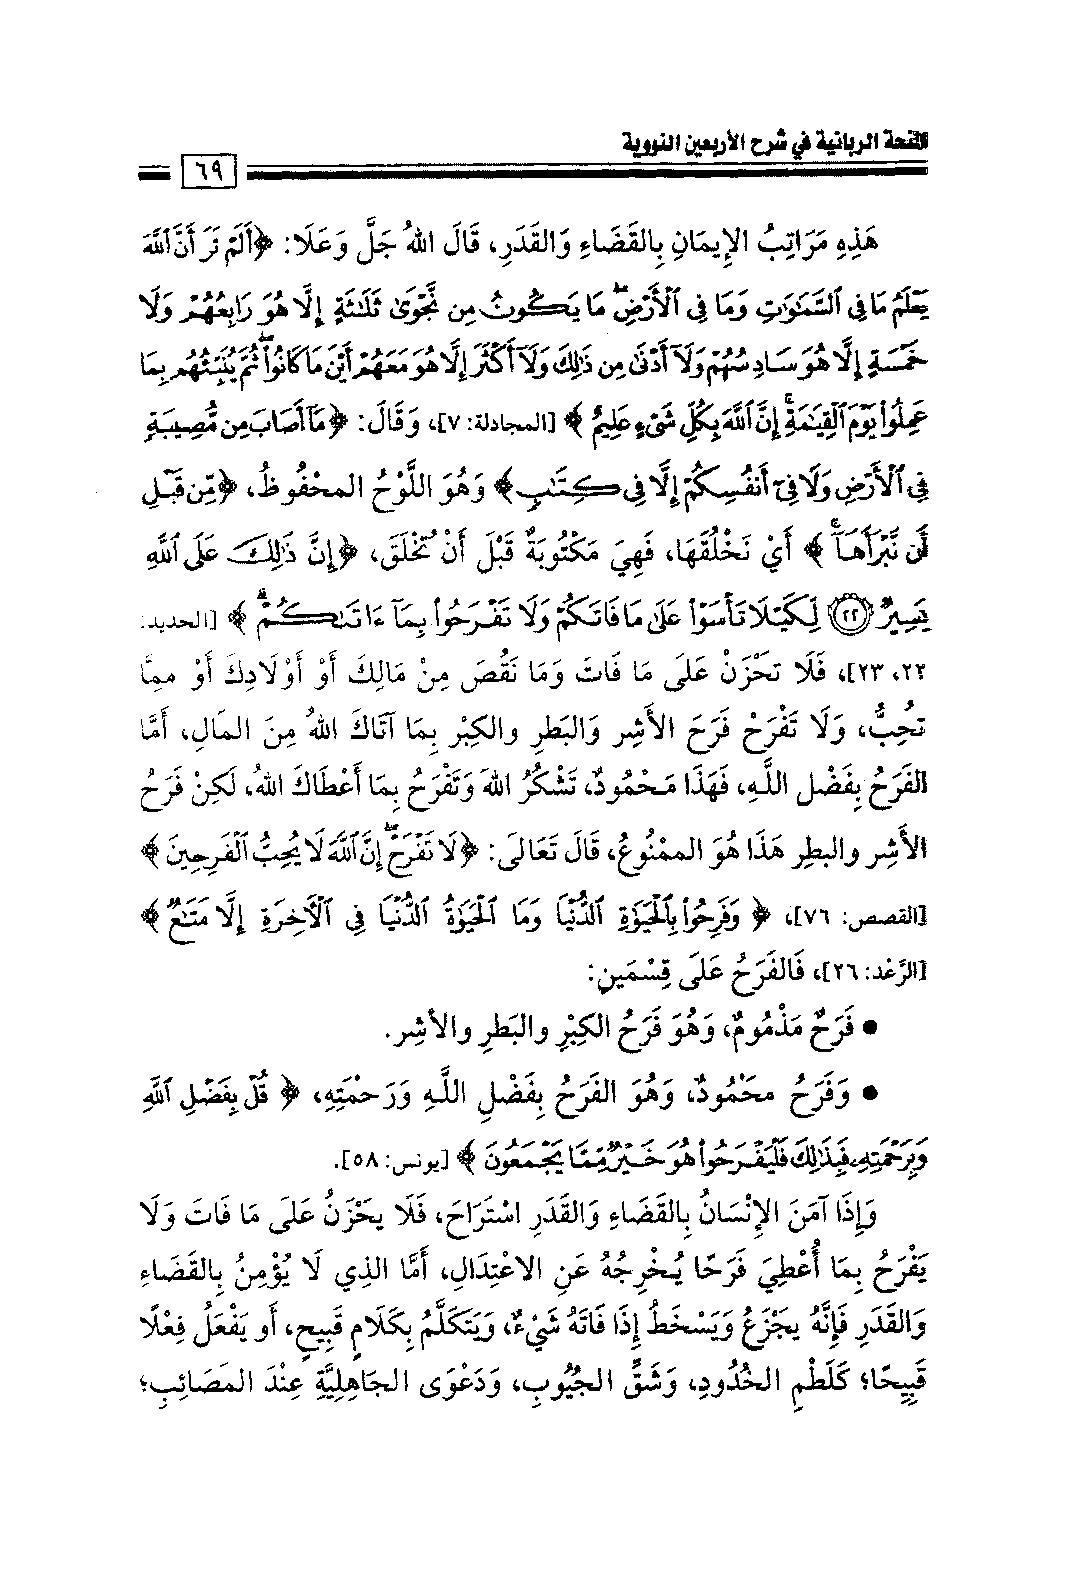 المنحة الربانية في شرح الأربعين النووية
٦٩
هَذِهِ مَرَاتِبُ الإِيمَانِ بِالقَضَاءِ وَالقَدَرِ، قَالَ اللهُ جَلَّ وَعَلَا: ﴿أَلَمْ تَرَ أَنَّ ٱللَّهَ
يَعْلَمُ مَا فِي ٱلسَّمَٰوَٰتِ وَمَا فِي ٱلْأَرْضِۖ مَا يَكُونُ مِن نَّجْوَىٰ ثَلَٰثَةٍ إِلَّا هُوَ رَابِعُهُمْ وَلَا
خَمْسَةٍ إِلَّا هُوَ سَادِسُهُمْ وَلَآ أَدْنَىٰ مِن ذَٰلِكَ وَلَآ أَكْثَرَ إِلَّا هُوَ مَعَهُمْ أَيْنَ مَا كَانُوا۟ۖ ثُمَّ يُنَبِّئُهُم بِمَا
عَمِلُوا۟ يَوْمَ ٱلْقِيَٰمَةِۚ إِنَّ ٱللَّهَ بِكُلِّ شَىْءٍ عَلِيمٌ﴾ [المجادلة: ٧]، وَقَالَ: ﴿مَآ أَصَابَ مِن مُّصِيبَةٍ
فِي ٱلْأَرْضِ وَلَا فِىٓ أَنفُسِكُمْ إِلَّا فِي كِتَٰبٍ﴾ وَهُوَ اللَّوْحُ المَحْفُوظُ، ﴿مِّن قَبْلِ
أَن نَّبْرَأَهَآۚ﴾ أَيْ نَخْلُقَهَا، فَهِيَ مَكْتُوبَةٌ قَبْلَ أَنْ تُخْلَقَ، ﴿إِنَّ ذَٰلِكَ عَلَى ٱللَّهِ
يَسِيرٌ ٢٢ لِّكَيْلَا تَأْسَوْا۟ عَلَىٰ مَا فَاتَكُمْ وَلَا تَفْرَحُوا۟ بِمَآ ءَاتَىٰكُمْۗ﴾ [الحديد:
٢٢، ٢٣]، فَلَا تَحْزَنْ عَلَى مَا فَاتَ وَمَا نَقُصَ مِنْ مَالِكَ أَوْ أَوْلَادِكَ أَوْ مِمَّا
تُحِبُّ، وَلَا تَفْرَحْ فَرَحَ الأَشِرِ وَالبَطِرِ والكِبْرِ بِمَا آتَاكَ اللهُ مِنَ المَالِ، أَمَّا
الفَرَحُ بِفَضْلِ اللَّـهِ، فَهَذَا مَحْمُودٌ، تَشْكُرُ اللهَ وَتَفْرَحُ بِمَا أَعْطَاكَ اللهُ، لَكِنْ فَرَحُ
الأَشِرِ والبطِرِ هَذَا هُوَ الممْنُوعُ، قَالَ تَعَالَى: ﴿لَا تَفْرَحْۖ إِنَّ ٱللَّهَ لَا يُحِبُّ ٱلْفَرِحِينَ﴾
[القصص: ٧٦]، ﴿وَفَرِحُوا۟ بِٱلْحَيَوٰةِ ٱلدُّنْيَا وَمَا ٱلْحَيَوٰةُ ٱلدُّنْيَا فِي ٱلْءَاخِرَةِ إِلَّا مَتَٰعٌ﴾
[الرَّعْد: ٢٦]، فَالفَرَحُ عَلَى قِسْمَينِ:
● فَرَحٌ مَذْمُومٌ، وَهُوَ فَرَحُ الكِبْرِ والبَطرِ والأشِر.
● وَفَرَحُ محَمُودٌ، وَهُوَ الفَرَحُ بِفَضْلِ اللَّـهِ وَرَحْمَتِهِ، ﴿قُلْ بِفَضْلِ ٱللَّهِ
وَبِرَحْمَتِهِۦ فَبِذَٰلِكَ فَلْيَفْرَحُوا۟ هُوَ خَيْرٌ مِّمَّا يَجْمَعُونَ﴾ [يونس: ٥٨].
وَإِذَا آمَنَ الإِنْسَانُ بِالقَضَاءِ وَالقَدَرِ اسْتَرَاحَ، فَلَا يَحْزَنُ عَلَى مَا فَاتَ وَلَا
يَفْرَحُ بِمَا أُعْطِيَ فَرَحًا يُخْرِجُهُ عَنِ الاعْتِدَالِ، أَمَّا الذِي لَا يُؤْمِنُ بِالقَضَاءِ
وَالقَدَرِ فَإِنَّهُ يجْزَعُ وَيَسْخَطُ إِذَا فَاتَهُ شَيْءٌ، وَيَتَكَلَّمُ بِكَلَامٍ قَبِيحٍ، أَو يَفْعَلُ فِعْلًا
قَبِيحًا؛ كَلَطْمِ الخُدُودِ، وَشَقِّ الجُيُوبِ، وَدَعْوَى الجَاهِلِيَّةِ عِنْدَ المَصَائِبِ؛